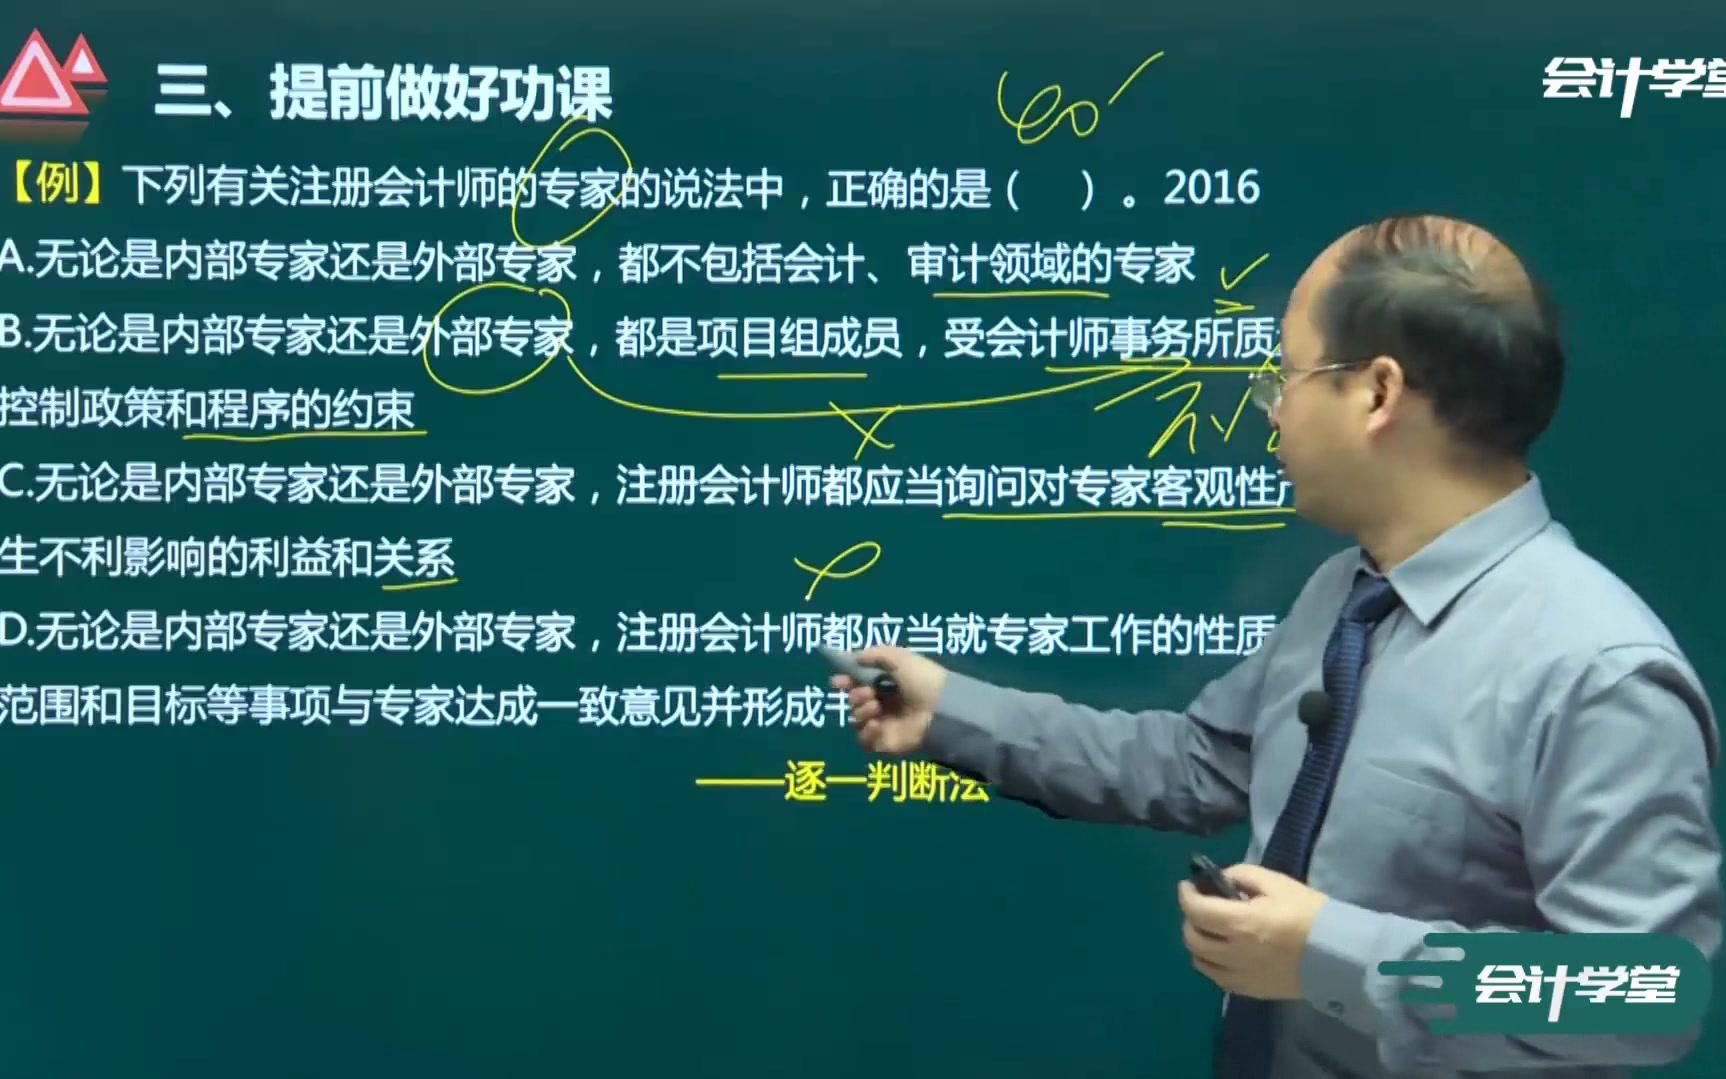 三、提前做好功课
会计学堂
【例】下列有关注册会计师的专家的说法中，正确的是（　）。2016
A.无论是内部专家还是外部专家，都不包括会计、审计领域的专家
B.无论是内部专家还是外部专家，都是项目组成员，受会计师事务所质
控制政策和程序的约束
C.无论是内部专家还是外部专家，注册会计师都应当询问对专家客观性产
生不利影响的利益和关系
D.无论是内部专家还是外部专家，注册会计师都应当就专家工作的性质
范围和目标等事项与专家达成一致意见并形成书
——逐一判断法
会计学堂